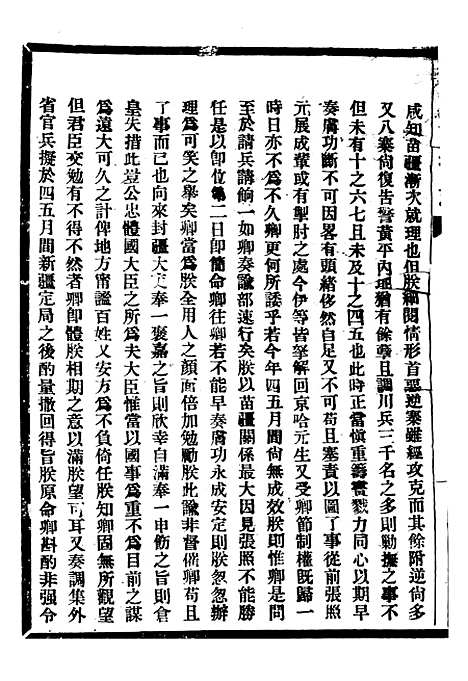 咸知苗疆漸次就理也但朕細閱情形首惡逆寨雖經攻克而其餘附逆尙多
又八寨尙復告警黃平內地猶有餘孽且調川兵三千名之多則勦撫之事不
但未有十之六七且未及十之四五也此時正當愼重籌畫戮力同心以期早
奏膚功斷不可因畧有頭緒侈然自足又不可苟且塞責以圖了事從前張照
元展成輩或有掣肘之處今伊等皆拏解回京哈元生又受卿節制權旣歸一
時日亦不爲不久卿更何所諉乎若今年四五月間尙無成效朕則惟卿是問
至於請兵請餉一如卿奏諭部速行矣朕以苗疆關係最大因見張照不能勝
任是以卽位第二日卽簡命卿往卿若不能早奏膚功永成安定則朕忽忽辦
理爲可笑之舉矣卿當爲朕全用人之顏面倍加勉勵朕此諭非督催卿苟且
了事而已也向來封疆大吏奉一褒嘉之旨則欣幸自滿奉一申飭之旨則倉
皇失措此豈公忠體國大臣之所爲夫大臣惟當以國事爲重不爲目前之謀
爲遠大可久之計俾地方甯謐百姓乂安方爲不負倚任朕知卿固無所觀望
但君臣交勉有不得不然者卿卽體朕相期之意以滿朕望可耳又奏調集外
省官兵擬於四五月間新疆定局之後酌量撤回得旨朕原命卿斟酌非强令